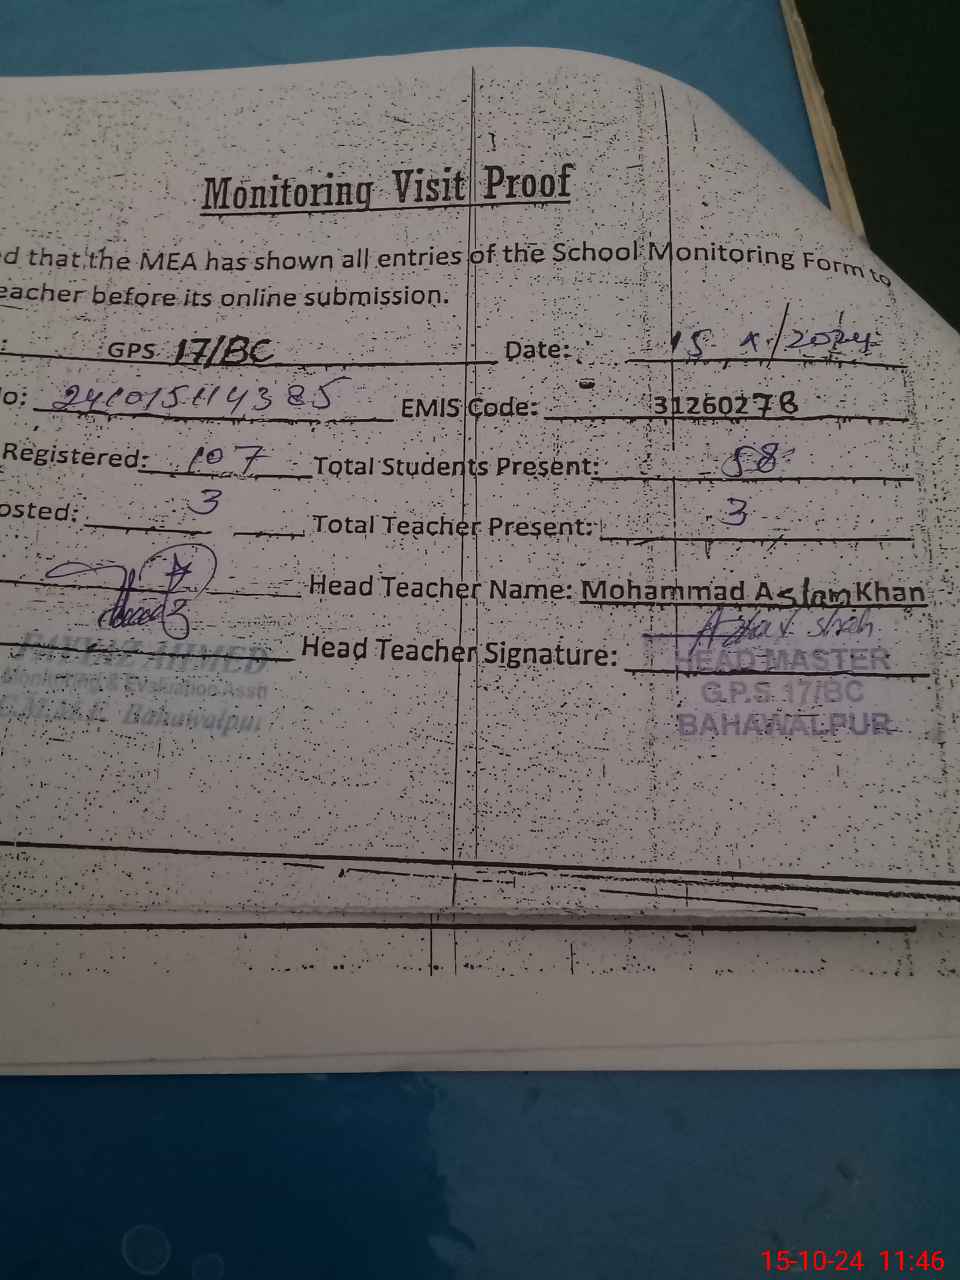 Monitoring Visit Proof
d that the MEA has shown all entries of the School Monitoring Form to
eacher before its online submission.
: GPS 17/BC Date: 15 X/2024
o: 241015114385 EMIS Code: 31260278
Registered: 107 Total Students Present: 58
osted: 3 Total Teacher Present: 3
Head Teacher Name: Mohammad Aslam Khan
Head Teacher Signature: Azhar Shah
FAYYAZ AHMED
Monitoring & Evaluation Asstt
C.M.M.F. Bahawalpur
HEAD MASTER
G.P.S 17/BC
BAHAWALPUR
15-10-24 11:46